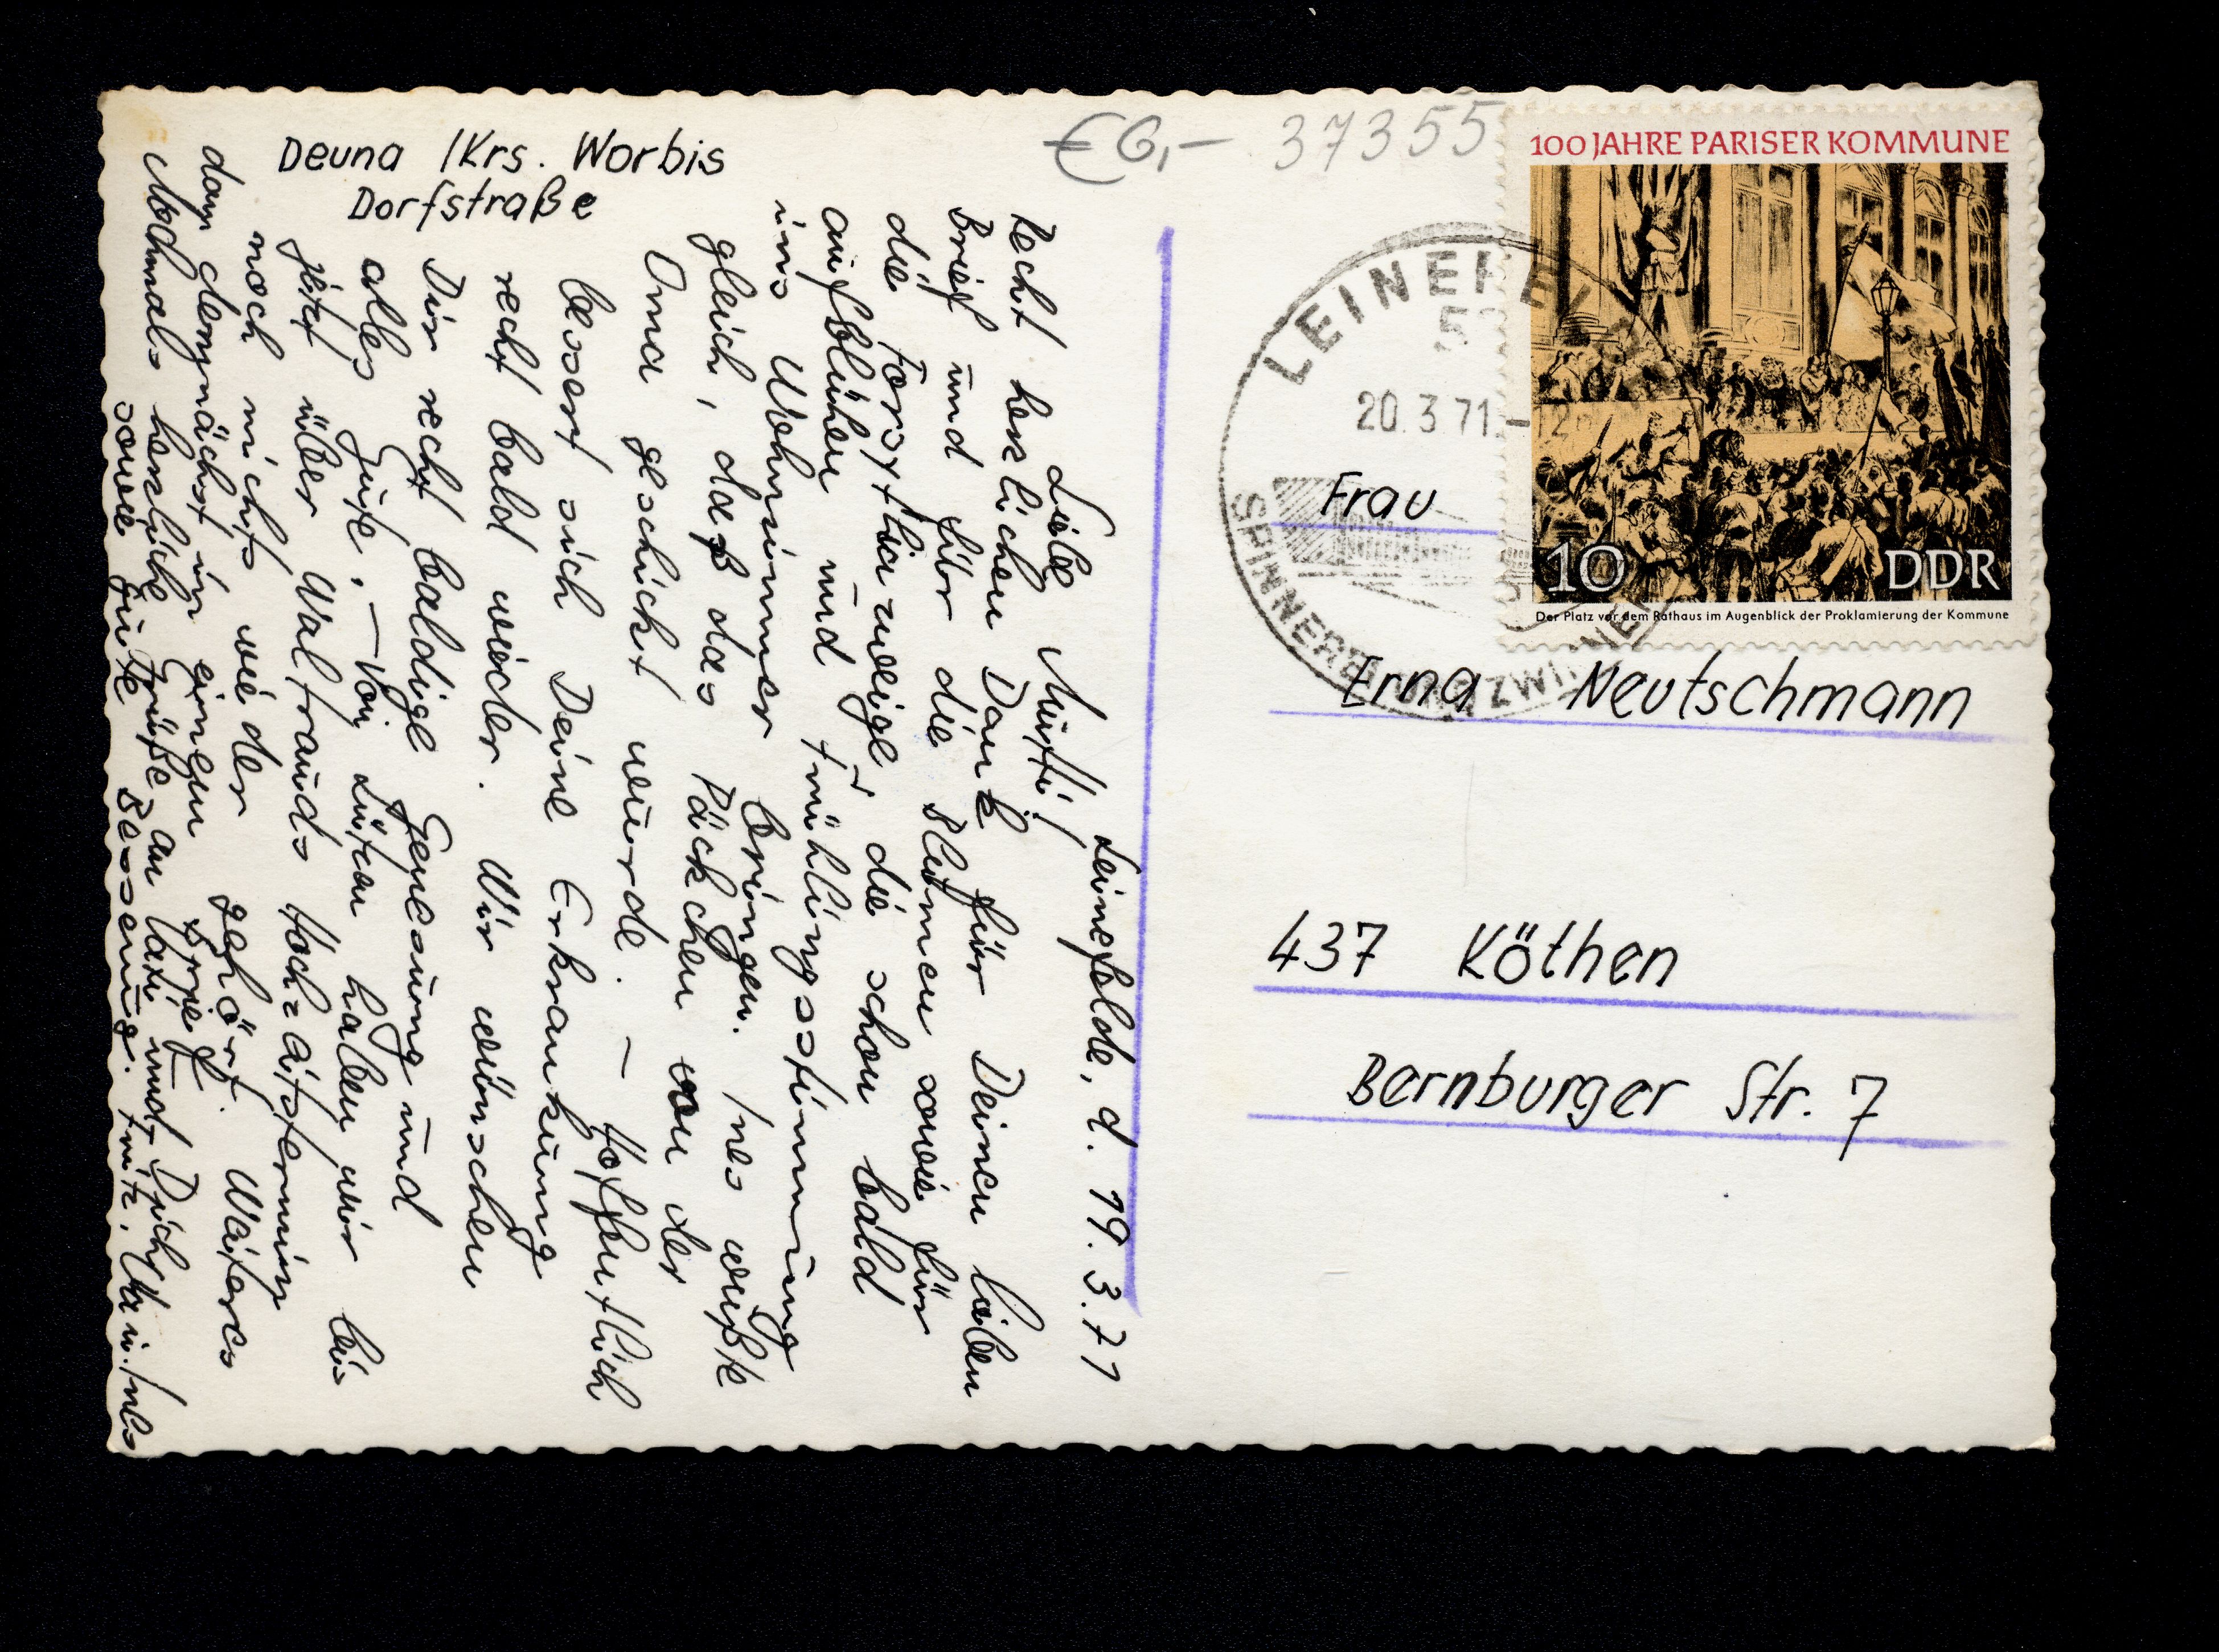 Deuna /Krs. Worbis
Dorfstraße
€ 6,- 37355
100 JAHRE PARISER KOMMUNE
10 DDR
Der Platz vor dem Rathaus im Augenblick der Proklamierung der Kommune
LEINEFELDE
20.3.71-12
SPINNEREI UND ZWIRNEREI
Frau
Erna Neutschmann
437 Köthen
Bernburger Str. 7
Leinefelde, d. 19.3.71
Liebe Mutti!
Recht herzlichen Dank für Deinen lieben
Brief und für die Blumen sowie für
die Forsythiazweige, die schon bald
aufblühen und Frühlingsstimmung
ins Wohnzimmer bringen. Ines wußte
gleich, daß das Päckchen von der
Oma geschickt wurde. – Hoffentlich
bessert sich Deine Erkrankung
recht bald wieder. Wir wünschen
Dir recht baldige Genesung und
alles Gute. – Von haben wir bis
jetzt über Waltrauds Hochzeitstermin
noch nichts wieder gehört. Weiteres
dann demnächst in einem Brief.
Nochmals herzliche Grüße an Vati und Dich
sowie gute Besserung. Fritz, Ines